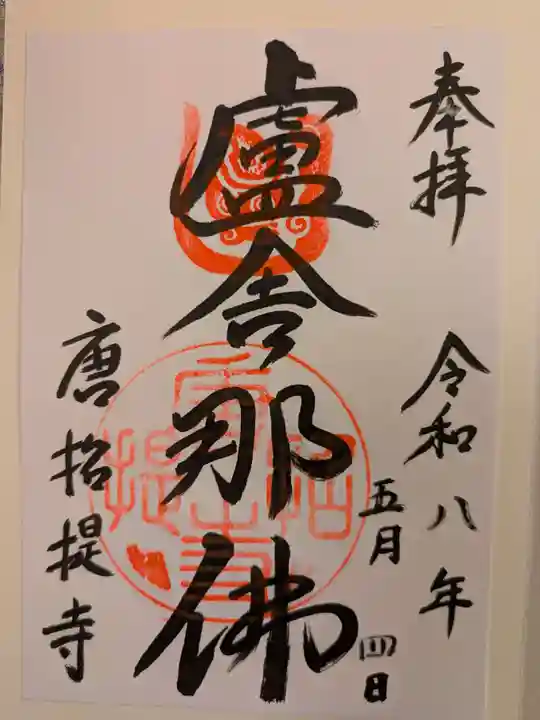 奉拝
令和八年
五月
四日
盧舎那佛
唐招提寺
唐招提寺